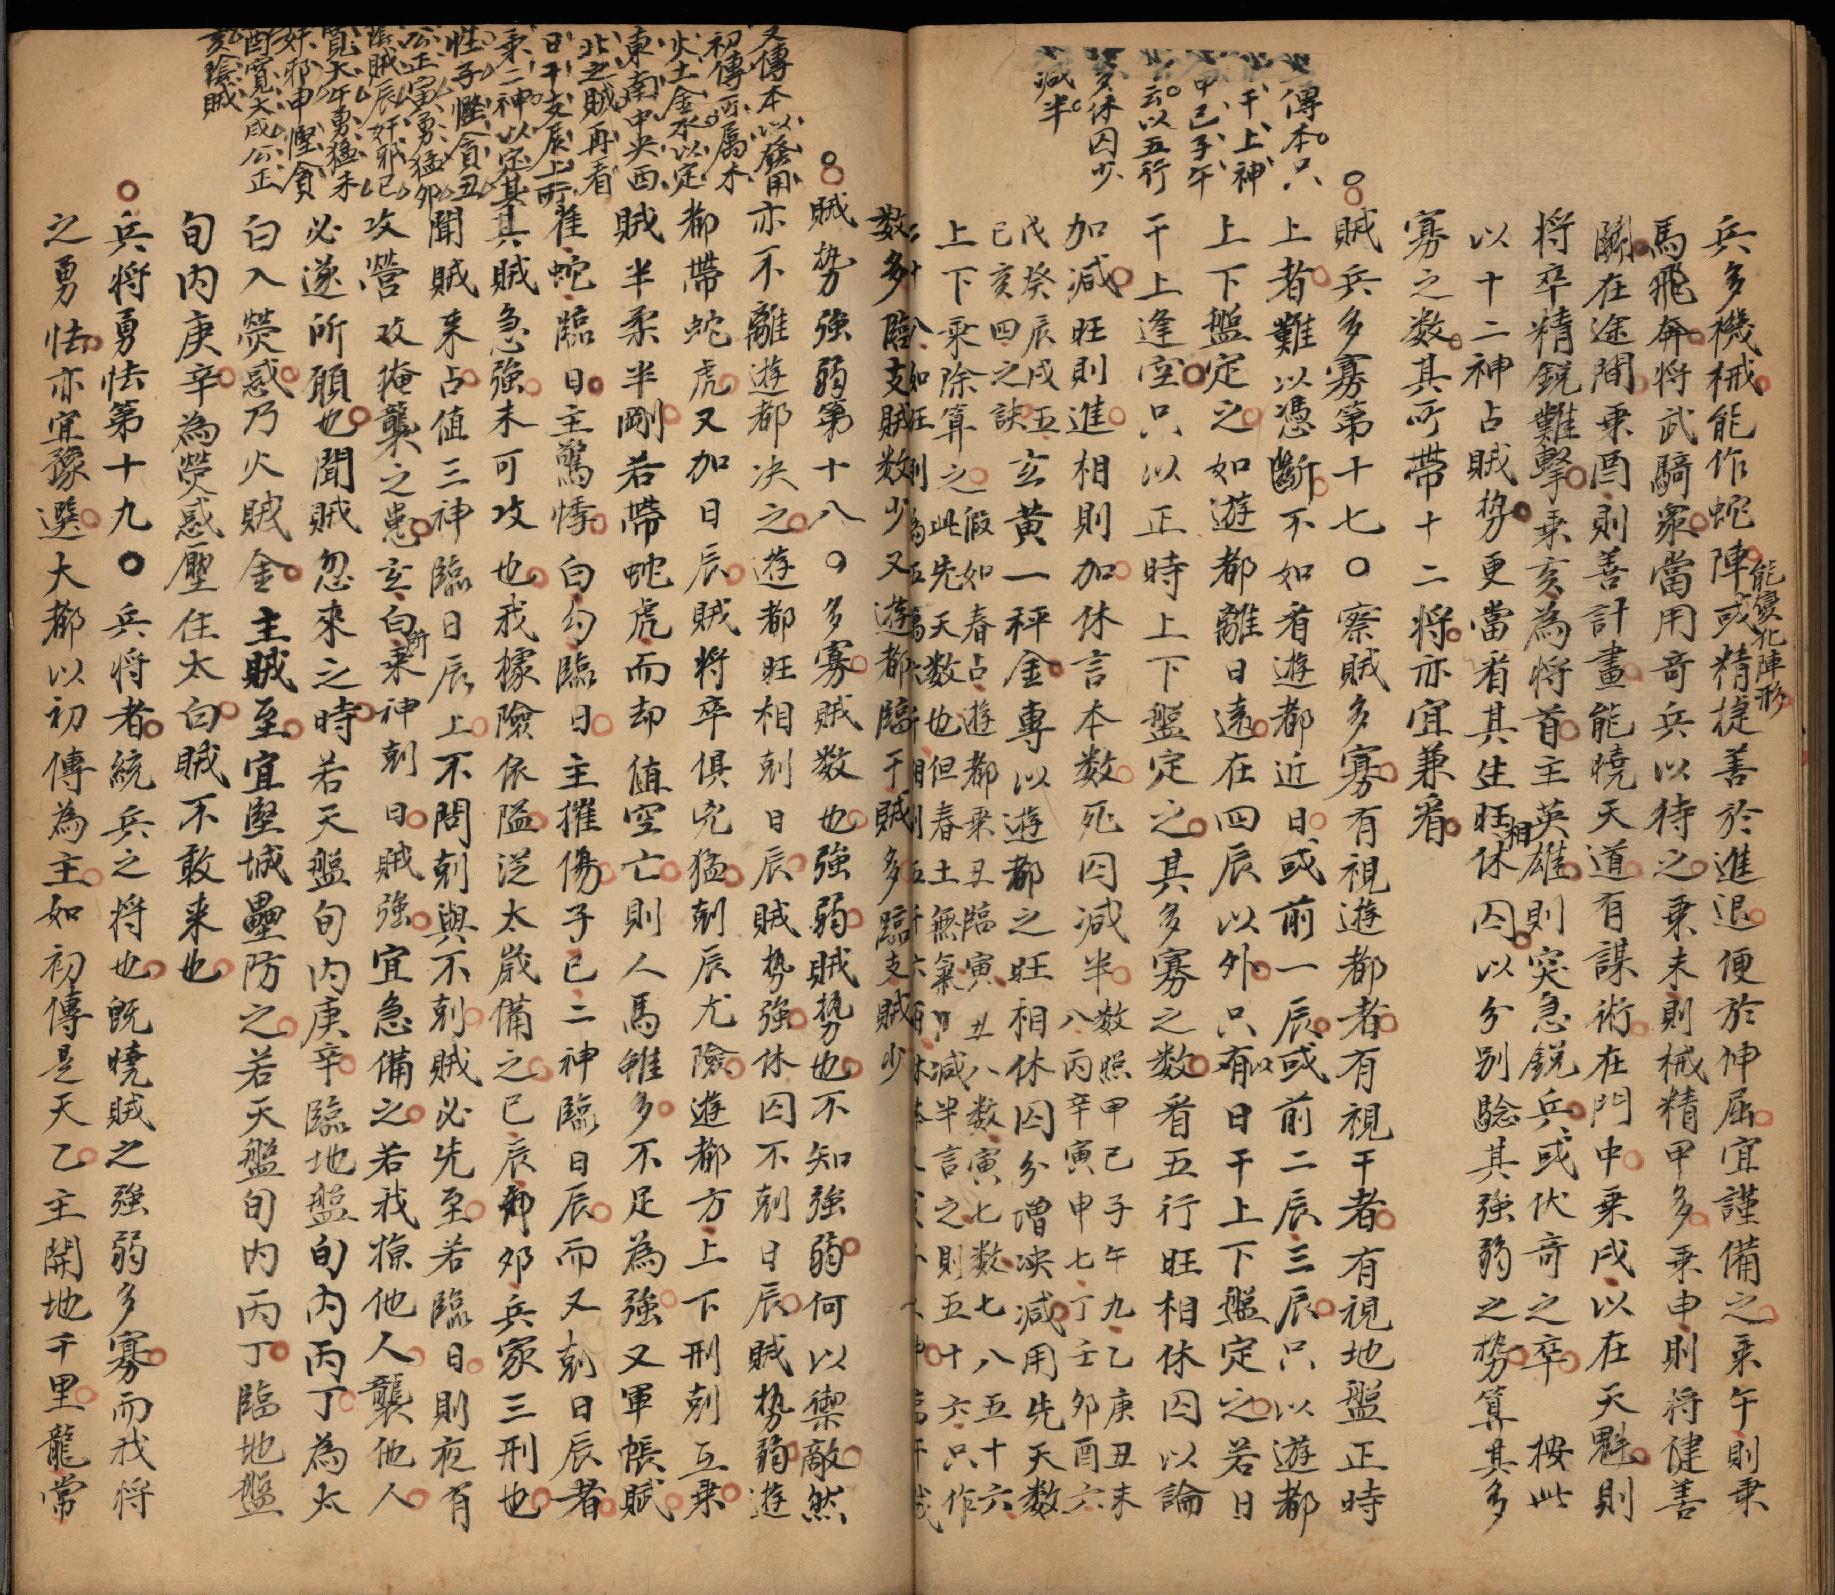 兵多機械能作蛇陣或精捷善於進退便於伸屈宜謹備之乘午則乘
能變化陣形
馬飛奔將武騎衆當用奇兵以待之乘未則械精甲多乘申則將健善
鬬在途間乘酉則善計畫能曉天道有謀術在門中乘戌以在天魁則
將卒精銳難擊乘亥為將首主英雄則突急銳兵或伏奇之卒 按此
以十二神占賊勢更當看其生旺相休囚以分別驗其強弱之勢算其多
寡之数其所帶十二將亦宜兼看
賊兵多寡第十七○察賊多寡有視遊都者有視干者有視地盤正時
上者難以憑斷不如看遊都近日或前一辰以或前二辰三辰只以遊都
上下盤定之如遊都離日遠在四辰以外只有日干上下盤定之若日
干上逢空只以正時上下盤定之其多寡之数看五行旺相休囚以論
加減旺則進相則加休言本数死囚減半
数照甲己子午九乙庚丑未
八丙辛寅申七丁壬卯酉六
戊癸辰戌五
已亥四之訣
玄黃一秤金專以遊都之旺相休囚分增決減用先天数
上下乘除算之
假如春占遊都乘丑臨寅丑八数寅七数七八五十六
此先天数也但春土無氣減半言之則五十六只作
又傳本只
干上神
甲己子午
云以五行
多休囚少
減半
数多臨支賊数少又遊都臨干賊多臨支賊少
賊勢強弱第十八○多寡賊数也強弱賊勢也不知強弱何以禦敵然
亦不離遊都决之遊都旺相尅日辰賊勢強休囚不尅日辰賊勢弱遊
都帶蛇虎又加日辰賊將卒俱兇猛尅辰尤險遊都方上下刑尅互乘
賊半柔半剛若帶蛇虎而却值空亡則人馬雖多不足為強又軍帳賦
雀蛇臨日主驚悸白勾臨日主摧傷子巳二神臨日辰而又尅日辰者
其賊急強未可攻也我據險依隘迯太歲備之巳辰卯兵家三刑也
聞賊来占值三神臨日辰上不問尅與不尅賊必先至若臨日則夜有
攻營攻掩襲之患玄白所乘神尅日賊強宜急備之若我掠他人襲他人
必遂所願也聞賊忽來之時若天盤旬內庚辛臨地盤旬內丙丁為太
白入熒惑乃火賊金主賊至宜堅城壘防之若天盤旬內丙丁臨地盤
旬內庚辛為熒惑壓住太白賊不敢来也
兵將勇怯第十九○兵將者統兵之將也旣曉賊之強弱多寡而我將
之勇怯亦宜豫選大都以初傳為主如初傳是天乙主開地千里龍常
又傳本以發用
初傳所屬木
火土金水以定
東南中央西
北之賊再看
日干支辰上所
乘二神以定其
性子慳貪丑
公正寅勇猛卯
陰賊辰奸邪巳
寬大午勇猛未
奸邪申慳貪
酉寬大戌公正
亥陰賊